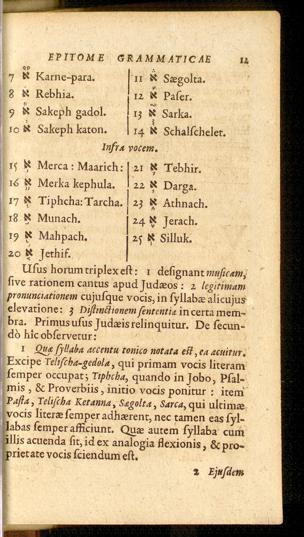 EPITOME GRAMMATICAE 12
7 א Karne-para.
8 א Rebhia.
9 א Sakeph gadol.
10 א Sakeph katon.
11 א Sægolta.
12 א Paſer.
13 א Sarka.
14 א Schalſchelet.
Infra vocem.
15 א Merca : Maarich:
16 א Merka kephula.
17 א Tiphcha: Tarcha.
18 א Munach.
19 א Mahpach.
20 א Jethif.
21 א Tebhir.
22 א Darga.
23 א Athnach.
24 א Jerach.
25 א Silluk.
Uſus horum triplex eſt : 1 deſignant muſicam,
ſive rationem cantus apud Judæos : 2 legitimam
pronunciationem cujuſque vocis, in ſyllabæ alicujus
elevatione: 3 Diſtinctionem ſententiæ in certa mem-
bra. Primus uſus Judæis relinquitur. De ſecun-
dò hîc obſervetur:
1 Quæ ſyllaba accentu tonico notata eſt, ea acuitur.
Excipe Teliſcha-gedola, qui primam vocis literam
ſemper occupat; Tiphcha, quando in Jobo, Pſal-
mis, & Proverbiis, initio vocis ponitur : item
Paſta, Teliſcha Ketanna, Sagolta, Sarca, qui ultimæ
vocis literæ ſemper adhærent, nec tamen eas ſyl-
labas ſemper afficiunt. Quæ autem ſyllaba cum
illis acuenda ſit, id ex analogia flexionis, & pro-
prietate vocis ſciendum eſt.
2 Ejuſdem